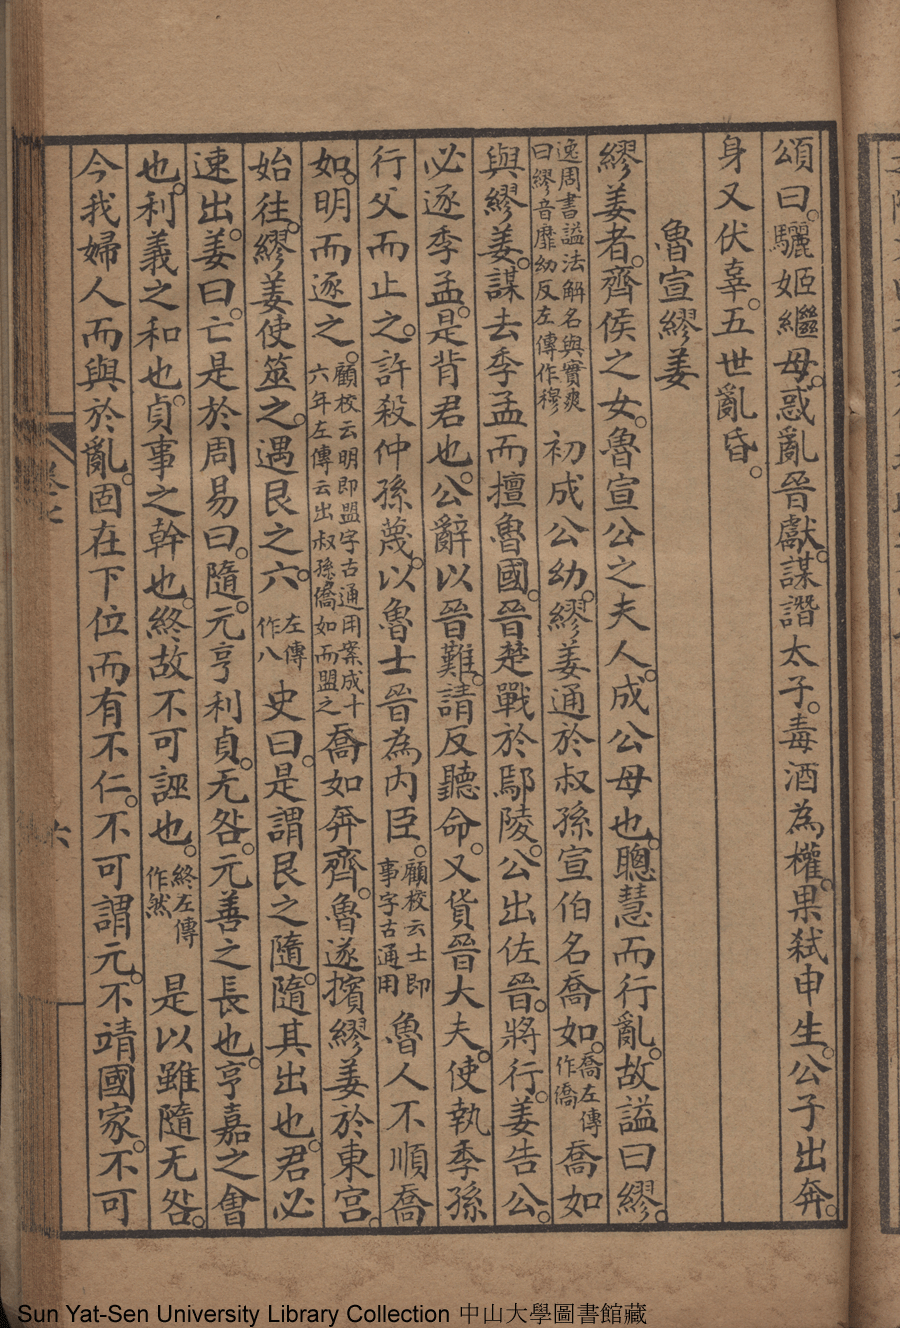 頌曰。驪姬繼母。惑亂晉獻。謀譖太子。毒酒為權。果弒申生。公子出奔。
身又伏辜。五世亂昏。
魯宣繆姜
繆姜者。齊侯之女。魯宣公之夫人。成公母也。聰慧而行亂。故謚曰繆。
逸周書謚法解名與實爽曰繆音靡幼反左傳作穆 初成公幼。繆姜通於叔孫宣伯名喬如。喬左傳作僑 喬如
與繆姜。謀去季孟而擅魯國。晉楚戰於鄢陵。公出佐晉。將行。姜告公。
必逐季孟。是背君也。公辭以晉難。請反聽命。又貨晉大夫。使執季孫
行父而止之。許殺仲孫蔑。以魯士晉為內臣。顧校云士即事字古通用 魯人不順喬
如。明而逐之。顧校云明即盟字古通用案成十六年左傳云出叔孫僑如而盟之 喬如奔齊。魯遂擯繆姜於東宮。
始往。繆姜使筮之。遇艮之六。左傳作八 史曰。是謂艮之隨。隨其出也。君必
速出。姜曰。亡是於周易曰。隨。元亨利貞。无咎。元善之長也。亨嘉之會
也。利義之和也。貞事之幹也。終故不可誣也。終左傳作然 是以雖隨无咎。
今我婦人而與於亂。固在下位而有不仁。不可謂元。不靖國家。不可
卷七
六
Sun Yat-Sen University Library Collection 中山大學圖書館藏